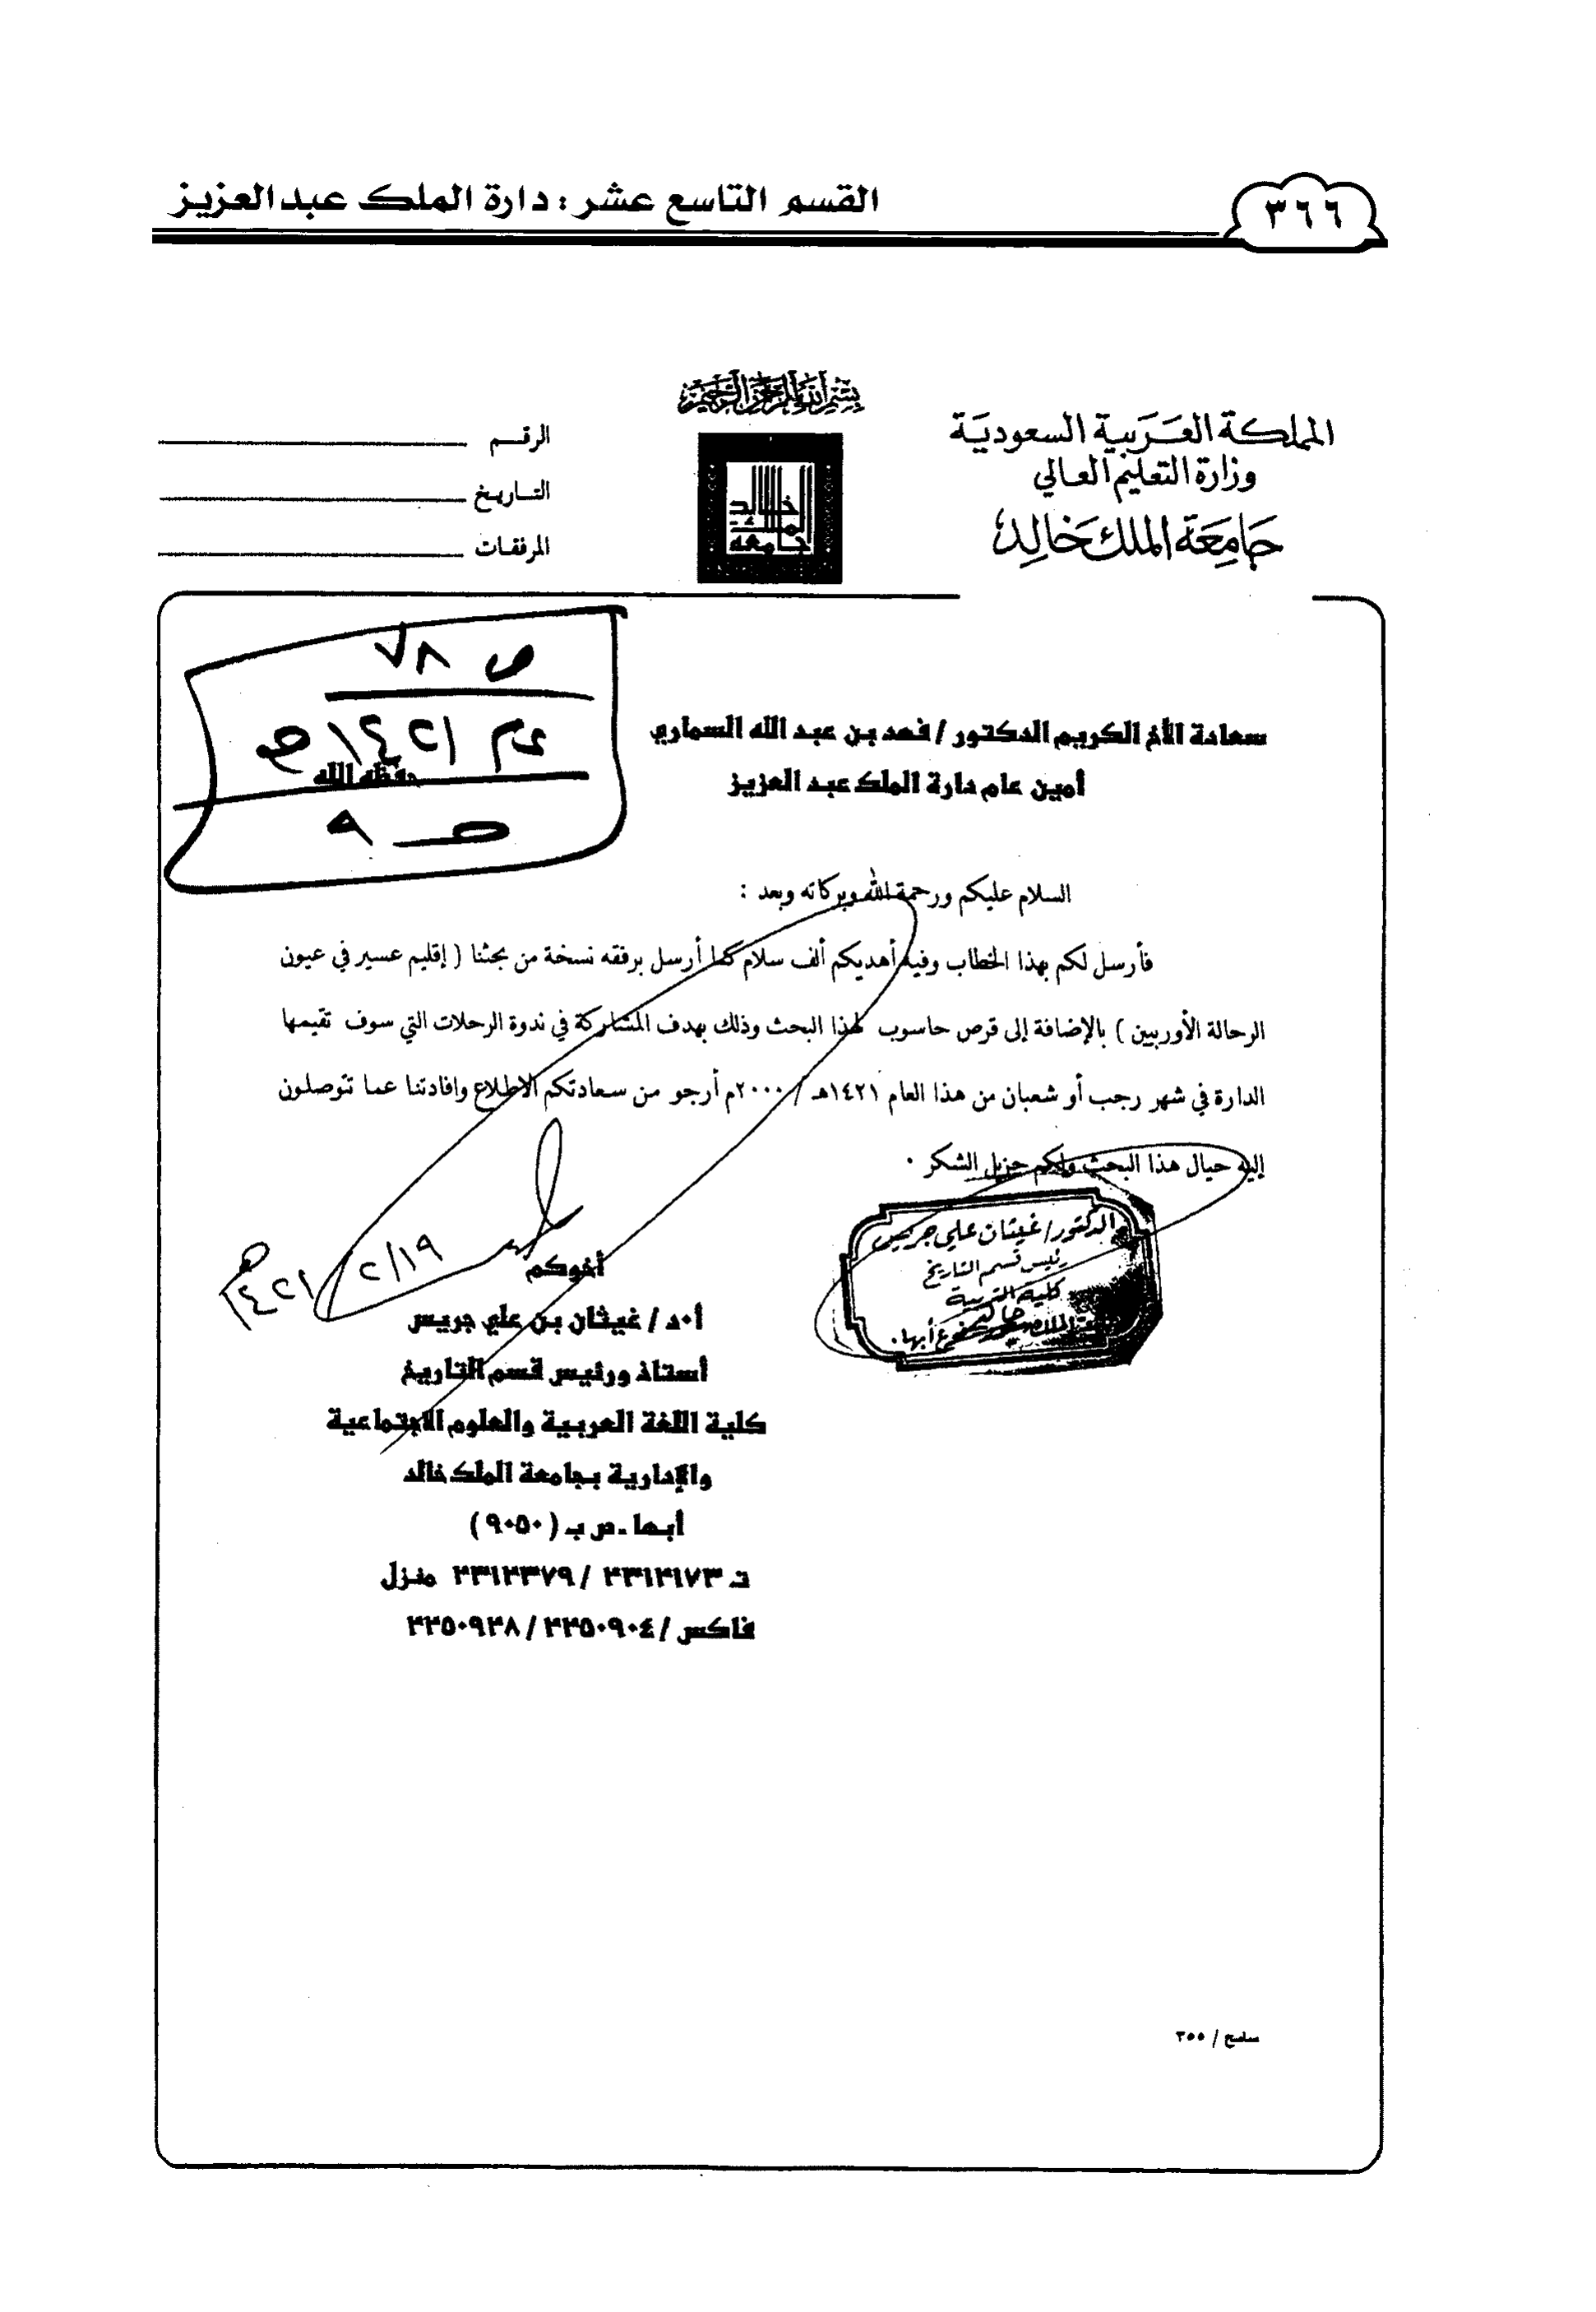 ٣٦٦
القسم التاسع عشر : دارة الملك عبدالعزيز
بسم الله الرحمن الرحيم
المملكة العربية السعودية
وزارة التعليم العالي
جامعة الملك خالد
جامعة الملك خالد
الرقم
التاريخ
المرفقات
عام ١٤٢١ هـ
سعادة الأخ الكريم الدكتور / فهد بن عبد الله السماري
أمين عام دارة الملك عبد العزيز حفظه الله
السلام عليكم ورحمة الله وبركاته وبعد :
فأرسل لكم بهذا الخطاب وفيه أهديكم ألف سلام كما أرسل برفقه نسخة من بحثنا ( إقليم عسير في عيون
الرحالة الأوربيين ) بالإضافة إلى قرص حاسوب لهذا البحث وذلك بهدف المشاركة في ندوة الرحلات التي سوف تقيمها
الدارة في شهر رجب أو شعبان من هذا العام ١٤٢١هـ / ٢٠٠٠م أرجو من سعادتكم الاطلاع وافادتنا عما تتوصلون
إليه حيال هذا البحث ولكم جزيل الشكر ٠
الدكتور / غيثان علي جريس
رئيس قسم التاريخ
كلية التربية
١٤٢١/٢/١٩هـ
أخوكم
أ٠د / غيثان بن علي جريس
أستاذ ورئيس قسم التاريخ
كلية اللغة العربية والعلوم الاجتماعية
والإدارية بجامعة الملك خالد
أبها ـ ص ب ( ٩٠٥٠ )
منزل
فاكس /
سامح / ٣٥٥